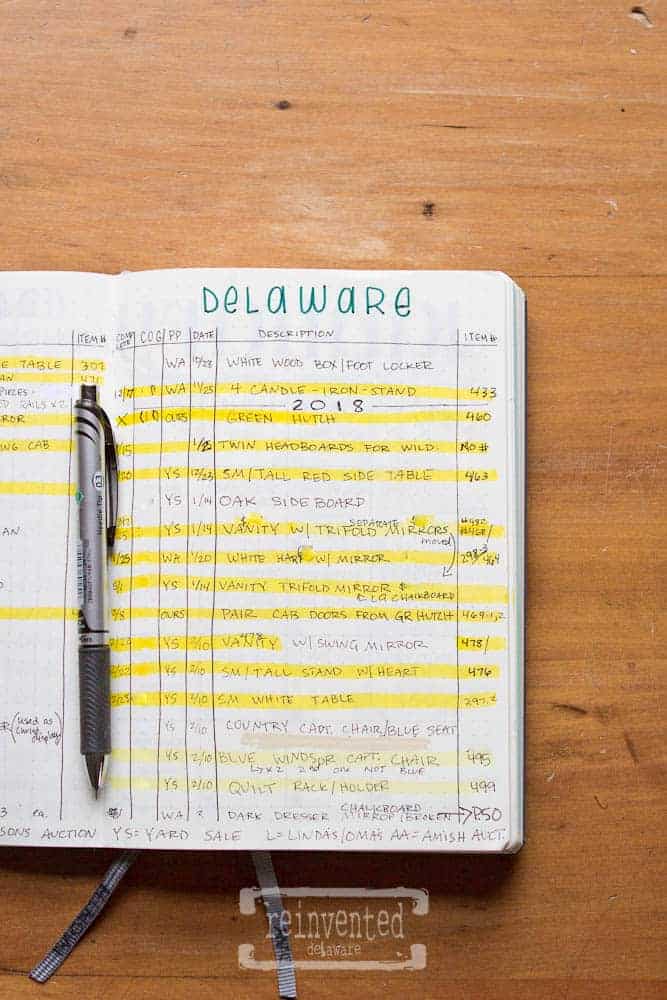 DELAWARE
ITEM# COG PP DATE DESCRIPTION ITEM#
TABLE 307 WA WHITE WOOD BOX/FOOT LOCKER
WA 11/25 4 CANDLE-IRON-STAND 433
2018
X OURS GREEN HUTCH 460
CAB TWIN HEADBOARDS FOR WILD. NO#
YS 12/23 SM/TALL RED SIDE TABLE 463
YS 1/14 OAK SIDEBOARD
SEPARATE
YS 1/14 VANITY W/ TRIFOLD MIRRORS
moved
WA 1/20 WHITE W/ MIRROR
YS 1/14 VANITY TRIFOLD MIRROR &
LG CHALKBOARD
OURS PAIR CAB DOORS FROM GR HUTCH
YS 2/10 VANITY W/SWING MIRROR 478/
YS 2/10 SM/TALL STAND W/HEART 476
YS 2/10 SM WHITE TABLE 297.2
(used as
YS 2/10 COUNTRY CAPT. CHAIR/BLUE SEAT
display)
YS 2/10 BLUE WINDSOR CAPT. CHAIR 495
x2 2nd one NOT BLUE
YS 2/10 QUILT RACK/HOLDER 499
CHALKBOARD
WA DARK DRESSER MIRROR/BROKEN → P.50
SONS AUCTION YS=YARD SALE L=LINDAS/OMAS AA=AMISH AUCT.
reinvented
delaware